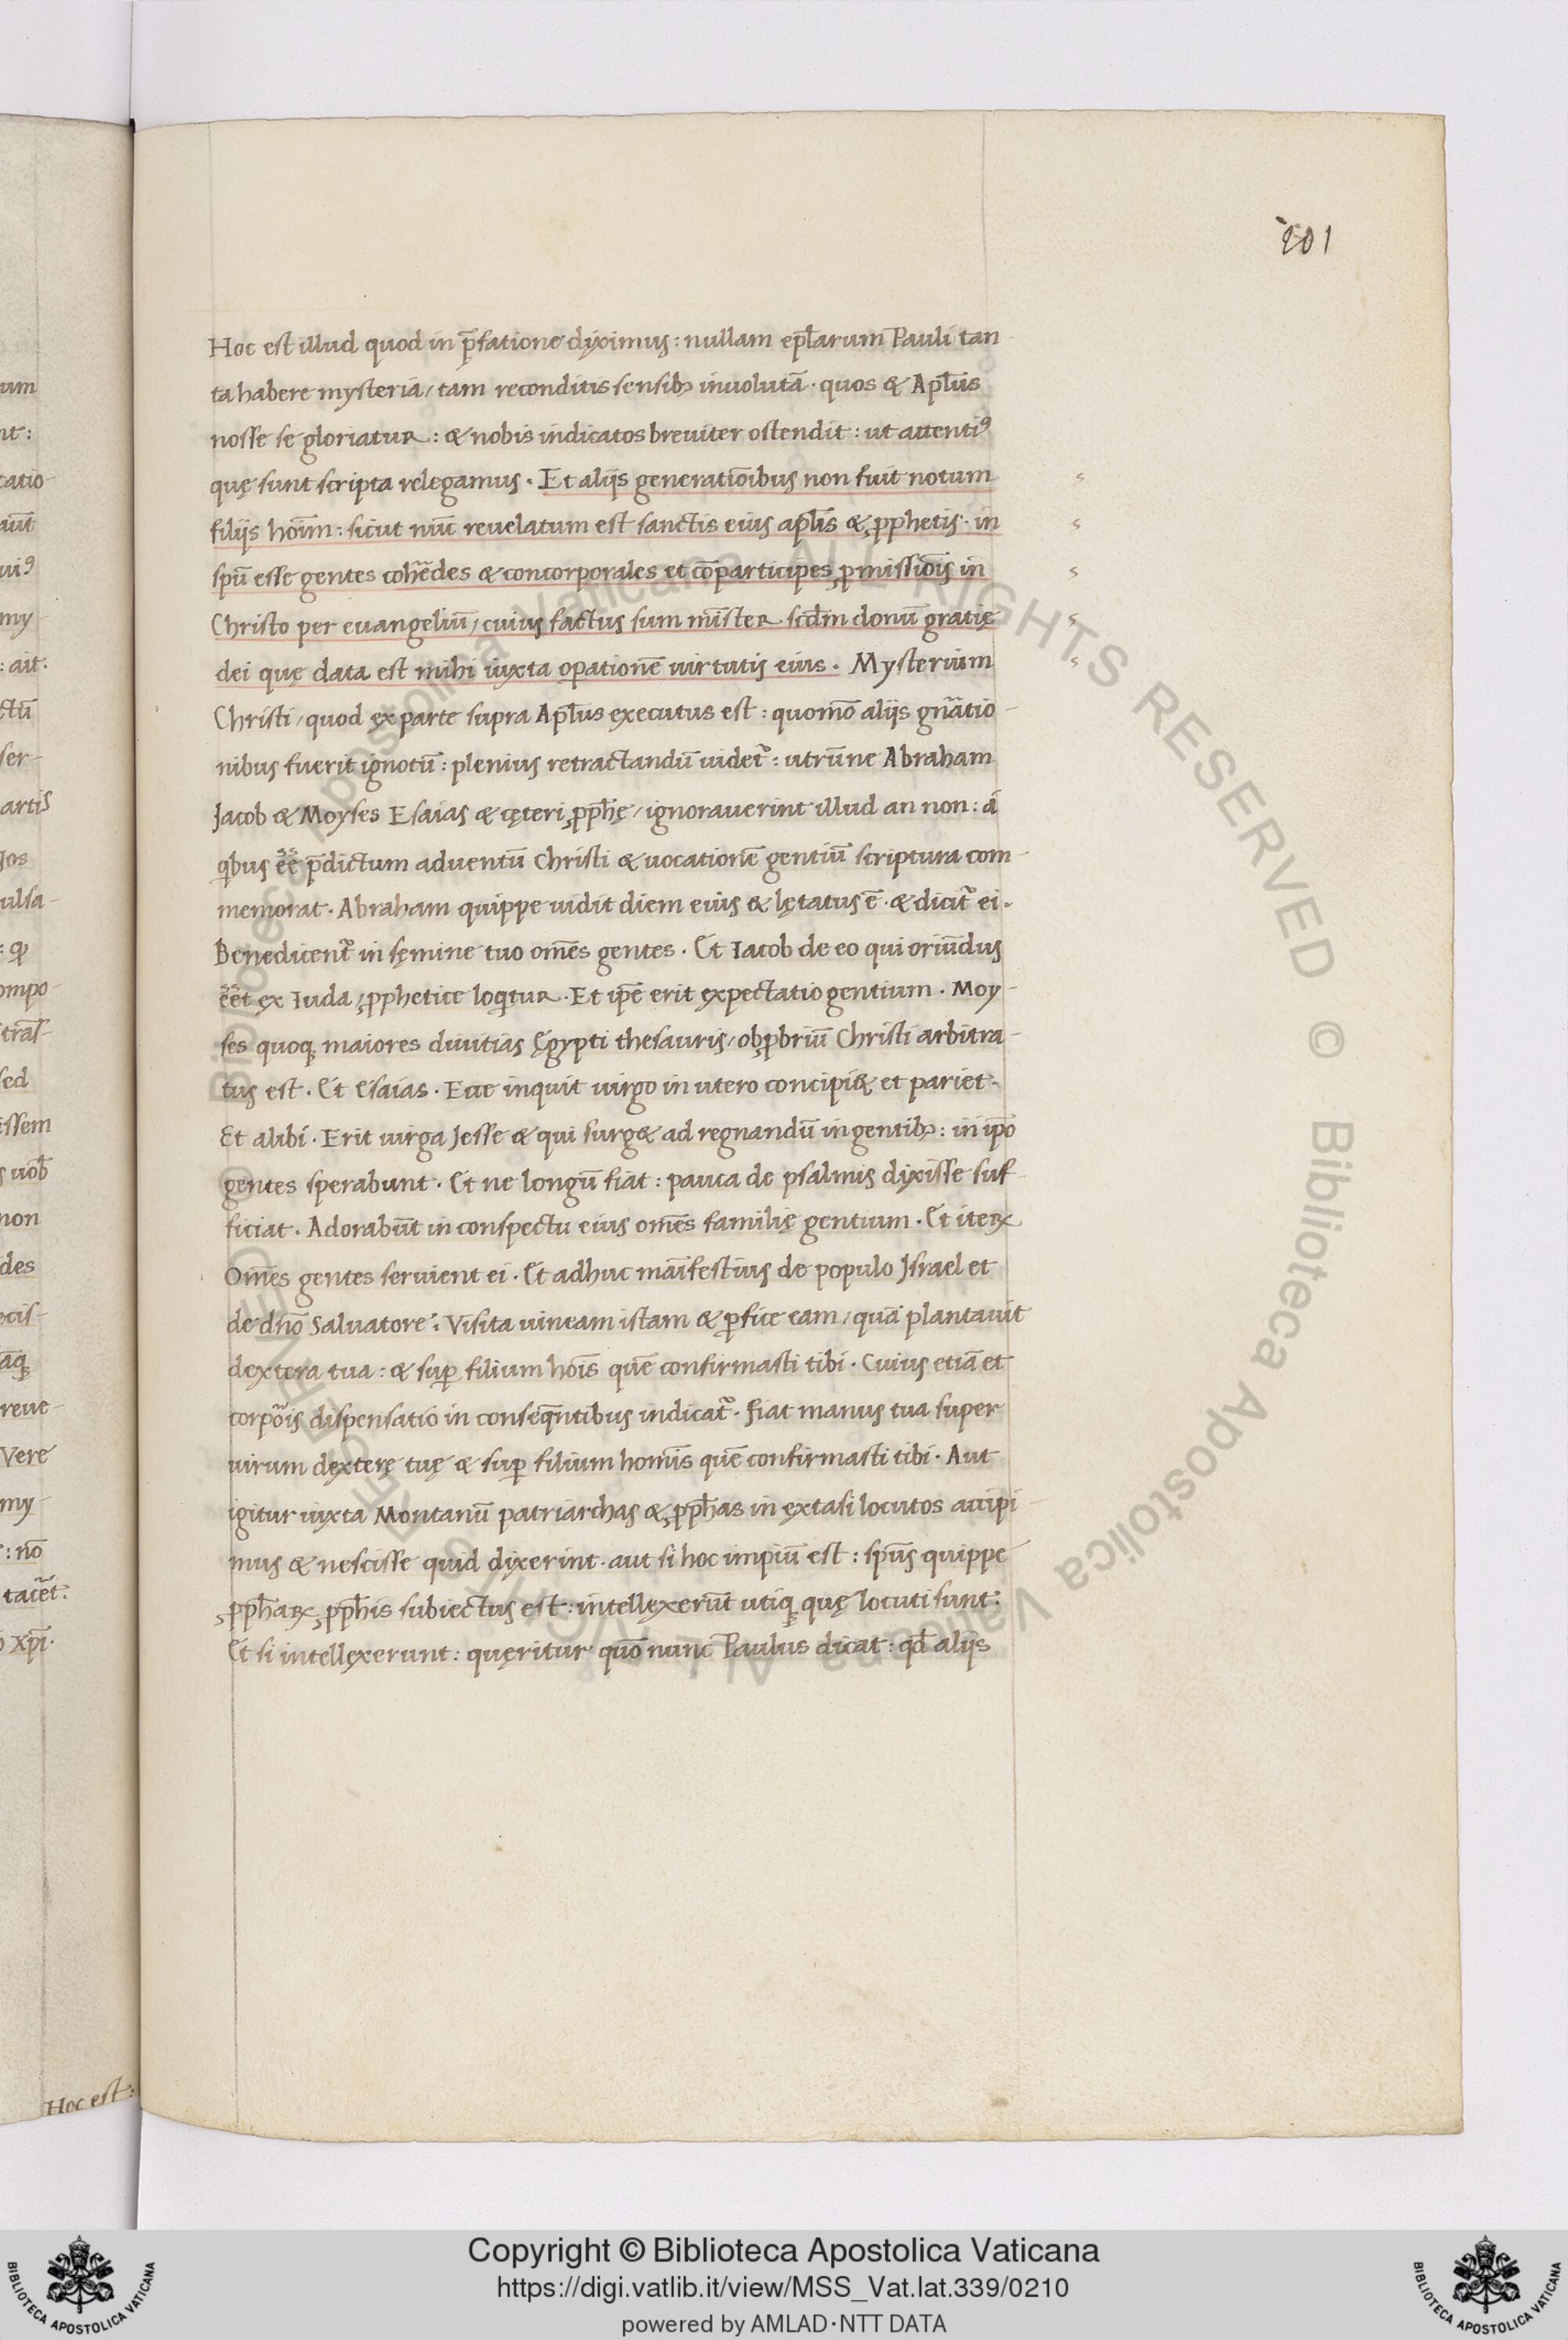 201
Hoc est illud quod in p̄fatione dyximus : nullam ep̄larum Pauli tan-
ta habere mysteria / tam reconditis sensibꝫ inuoluta · quos & Apl̄us
nosse se gloriatur : & nobis indicatos breuiter ostendit : ut attentiꝰ
quę sunt scripta relegamus · Et alijs generatiōibus non fuit notum
filijs hoīm : sicut nūc reuelatum est sanctis eius apl̄is & ꝓphetis · in
spū esse gentes cohēdes & concorporales et cōparticipes ꝓmissiōis in
Christo per euangeliū / cuius factus sum mīster · scd̄m donū gratię
dei quę data est mihi iuxta oꝑationē uirtutis eius · Mysterium
Christi / quod ex parte supra Apl̄us executus est : quomō alijs gn̄atio-
nibus fuerit ignotū : plenius retractandū uidet᷑ : utrūne Abraham
Jacob & Moyses Esaias & cęteri ꝓph̄ę / ignorauerint illud an non : a
qibus ēē p̄dictum aduentū Christi & uocationē gentiū scriptura com-
memorat · Abraham quippe uidit diem eius & lętatus ē · & dicit᷑ ei ·
Benedicent᷑ in sęmine tuo om̄es gentes · Et Iacob de eo qui oriūdus
ēēt ex Iuda / ꝓphetice loqitur · Et ip̄e erit expectatio gentium · Moy-
ses quoqꝫ maiores diuitias Ęgypti thesauris / obꝓbriū Christi arbitra-
tus est · Et Esaias · Ecce inquit uirgo in utero concipi& et pariet ·
Et alibi · Erit uirga Jesse & qui surg& ad regnandū in gentibꝫ : in ip̄o
gentes sperabunt · Et ne longū fiat : pauca de psalmis dyxisse suf-
ficiat · Adorabūt in conspectu eius om̄es familię gentium · Et iteꝝ
Om̄es gentes seruient ei · Et adhuc māifestius de populo Jsrael et
de dn̄o Saluatore : Visita uineam istam & ꝑfice eam / quā plantauit
dextera tua : & suꝑ filium hoīs quē confirmasti tibi · Cuius etiā et
corpōis dispensatio in conseq̄ntibus indicat᷑ · fiat manus tua super
uirum dexterę tuę & suꝑ filium homīs quē confirmasti tibi · Aut
igitur iuxta Montanū patriarchas & ꝓph̄as in extasi locutos accipi-
mus & nescisse quid dyxerint · aut si hoc impiū est : sp̄us quippe
ꝓph̄aꝝ ꝓph̄is subiectus est : intellexerūt utiqꝫ quę locuti sunt :
Et si intellexerunt : quęritur quō nunc Paulus dicat : qd̄ alijs
Hoc est :
Copyright © Biblioteca Apostolica Vaticana
https://digi.vatlib.it/view/MSS_Vat.lat.339/0210
powered by AMLAD·NTT DATA